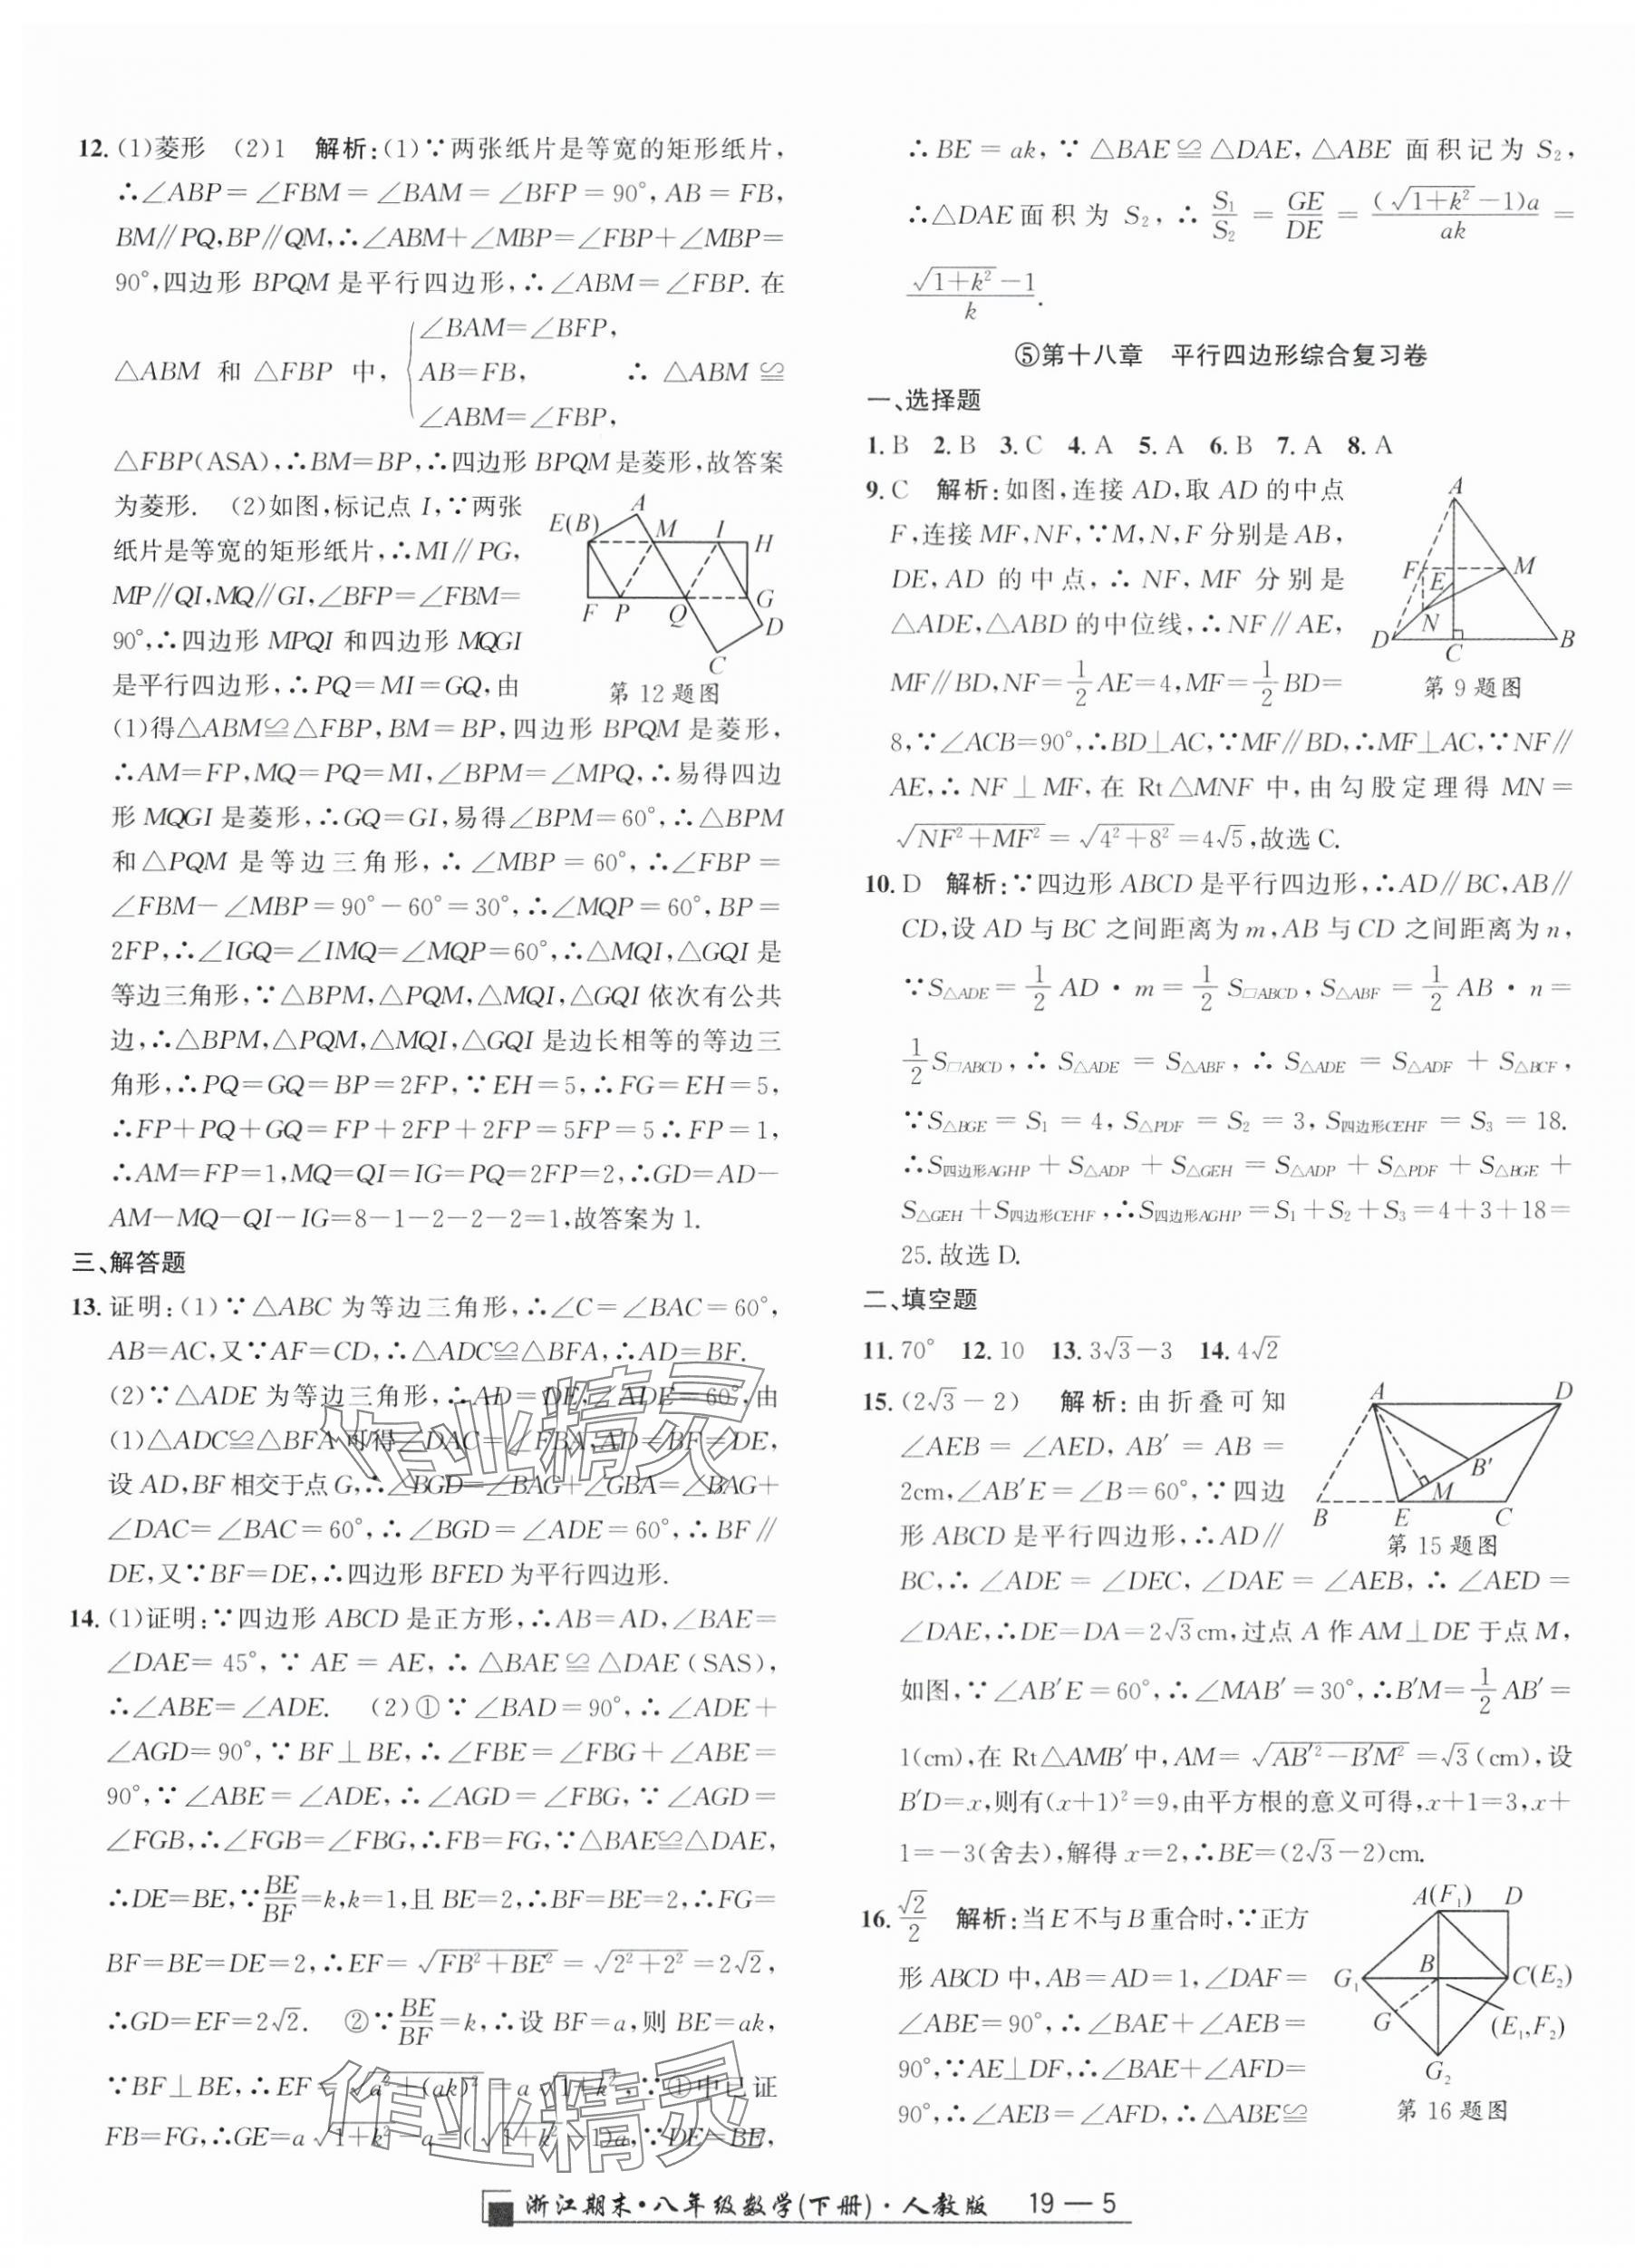 12. (1)菱形　(2)1　解析:(1)∵两张纸片是等宽的矩形纸片,
∴∠ABP=∠FBM=∠BAM=∠BFP=90°,AB=FB,
BM∥PQ,BP∥QM,∴∠ABM+∠MBP=∠FBP+∠MBP=
90°,四边形 BPQM 是平行四边形,∴∠ABM=∠FBP. 在
△ABM 和 △FBP 中, { ∠BAM=∠BFP, AB=FB, ∠ABM=∠FBP, ∴ △ABM≌
△FBP(ASA),∴BM=BP,∴四边形 BPQM 是菱形,故答案
为菱形.　(2)如图,标记点 I,∵两张
纸片是等宽的矩形纸片,∴MI∥PG,
MP∥QI,MQ∥GI,∠BFP=∠FBM=
90°,∴四边形 MPQI 和四边形 MQGI
是平行四边形,∴PQ=MI=GQ,由
E(B) A M I H F P Q G D C
第 12 题图
(1)得△ABM≌△FBP,BM=BP,四边形 BPQM 是菱形,
∴AM=FP,MQ=PQ=MI,∠BPM=∠MPQ,∴易得四边
形 MQGI 是菱形,∴GQ=GI,易得∠BPM=60°,∴△BPM
和△PQM 是等边三角形,∴∠MBP=60°,∴∠FBP=
∠FBM-∠MBP=90°-60°=30°,∴∠MQP=60°,BP=
2FP,∴∠IGQ=∠IMQ=∠MQP=60°,∴△MQI,△GQI 是
等边三角形,∵△BPM,△PQM,△MQI,△GQI 依次有公共
边,∴△BPM,△PQM,△MQI,△GQI 是边长相等的等边三
角形,∴PQ=GQ=BP=2FP,∵EH=5,∴FG=EH=5,
∴FP+PQ+GQ=FP+2FP+2FP=5FP=5∴FP=1,
∴AM=FP=1,MQ=QI=IG=PQ=2FP=2,∴GD=AD-
AM-MQ-QI-IG=8-1-2-2-2=1,故答案为 1.
三、解答题
13. 证明:(1)∵△ABC 为等边三角形,∴∠C=∠BAC=60°,
AB=AC,又∵AF=CD,∴△ADC≌△BFA,∴AD=BF.
(2)∵△ADE 为等边三角形,∴AD=DE,∠ADE=60°,由
(1)△ADC≌△BFA 可得∠DAC=∠FBA,AD=BF=DE,
设 AD,BF 相交于点 G,∴∠BGD=∠BAG+∠GBA=∠BAG+
∠DAC=∠BAC=60°,∴∠BGD=∠ADE=60°,∴BF∥
DE,又∵BF=DE,∴四边形 BFED 为平行四边形.
14. (1)证明:∵四边形 ABCD 是正方形,∴AB=AD,∠BAE=
∠DAE=45°,∵AE=AE,∴△BAE≌△DAE(SAS),
∴∠ABE=∠ADE.　(2)①∵∠BAD=90°,∴∠ADE+
∠AGD=90°,∵BF⊥BE,∴∠FBE=∠FBG+∠ABE=
90°,∵∠ABE=∠ADE,∴∠AGD=∠FBG,∵∠AGD=
∠FGB,∴∠FGB=∠FBG,∴FB=FG,∵△BAE≌△DAE,
∴DE=BE,∵BE/BF=k,k=1,且 BE=2,∴BF=BE=2,∴FG=
BF=BE=DE=2,∴EF=√(FB²+BE²)=√(2²+2²)=2√2,
∴GD=EF=2√2.　②∵BE/BF=k,∴设 BF=a,则 BE=ak,
∵BF⊥BE,∴EF=√(a²+(ak)²)=a√(1+k²),∵①中已证
FB=FG,∴GE=a√(1+k²)-a=(√(1+k²)-1)a,∵DE=BE,
∴BE=ak,∵△BAE≌△DAE,△ABE 面积记为 S₂,
∴△DAE 面积为 S₂,∴ S₁/S₂ = GE/DE = (√(1+k²)-1)a/ak =
(√(1+k²)-1)/k.
⑤第十八章　平行四边形综合复习卷
一、选择题
1. B　2. B　3. C　4. A　5. A　6. B　7. A　8. A
9. C　解析:如图,连接 AD,取 AD 的中点
F,连接 MF,NF,∵M,N,F 分别是 AB,
DE,AD 的中点,∴NF,MF 分别是
△ADE,△ABD 的中位线,∴NF∥AE,
MF∥BD,NF=1/2 AE=4,MF=1/2 BD=
A F E M N D C B
第 9 题图
8,∵∠ACB=90°,∴BD⊥AC,∵MF∥BD,∴MF⊥AC,∵NF∥
AE,∴NF⊥MF,在 Rt△MNF 中,由勾股定理得 MN=
√(NF²+MF²)=√(4²+8²)=4√5,故选 C.
10. D　解析:∵四边形 ABCD 是平行四边形,∴AD∥BC,AB∥
CD,设 AD 与 BC 之间距离为 m,AB 与 CD 之间距离为 n,
∵S△ADE=1/2 AD·m=1/2 S▱ABCD,S△ABF=1/2 AB·n=
1/2 S▱ABCD,∴S△ADE=S△ABF,∴S△ADE=S△ADF+S△BCF,
∵S△BGE=S₁=4,S△PDF=S₂=3,S四边形CEHF=S₃=18.
∴S四边形AGHP+S△ADP+S△GEH=S△ADP+S△PDF+S△BGE+
S△GEH+S四边形CEHF,∴S四边形AGHP=S₁+S₂+S₃=4+3+18=
25. 故选 D.
二、填空题
11. 70°　12. 10　13. 3√3-3　14. 4√2
15. (2√3-2)　解析:由折叠可知
∠AEB=∠AED,AB′=AB=
2cm,∠AB′E=∠B=60°,∵四边
形 ABCD 是平行四边形,∴AD∥
A D B′ M B E C
第 15 题图
BC,∴∠ADE=∠DEC,∠DAE=∠AEB,∴∠AED=
∠DAE,∴DE=DA=2√3cm,过点 A 作 AM⊥DE 于点 M,
如图,∵∠AB′E=60°,∴∠MAB′=30°,∴B′M=1/2 AB′=
1(cm),在 Rt△AMB′中,AM=√(AB′²-B′M²)=√3(cm),设
B′D=x,则有(x+1)²=9,由平方根的意义可得,x+1=3,x+
1=-3(舍去),解得 x=2,∴BE=(2√3-2)cm.
16. √2/2　解析:当 E 不与 B 重合时,∵正方
形 ABCD 中,AB=AD=1,∠DAF=
∠ABE=90°,∴∠BAE+∠AEB=
90°,∵AE⊥DF,∴∠BAE+∠AFD=
90°,∴∠AEB=∠AFD,∴△ABE≌
A(F₁) D G₁ B C(E₂) G (E₁,F₂) G₂
第 16 题图
作业精灵
作业精灵
浙江期末·八年级数学(下册)·人教版　19 — 5